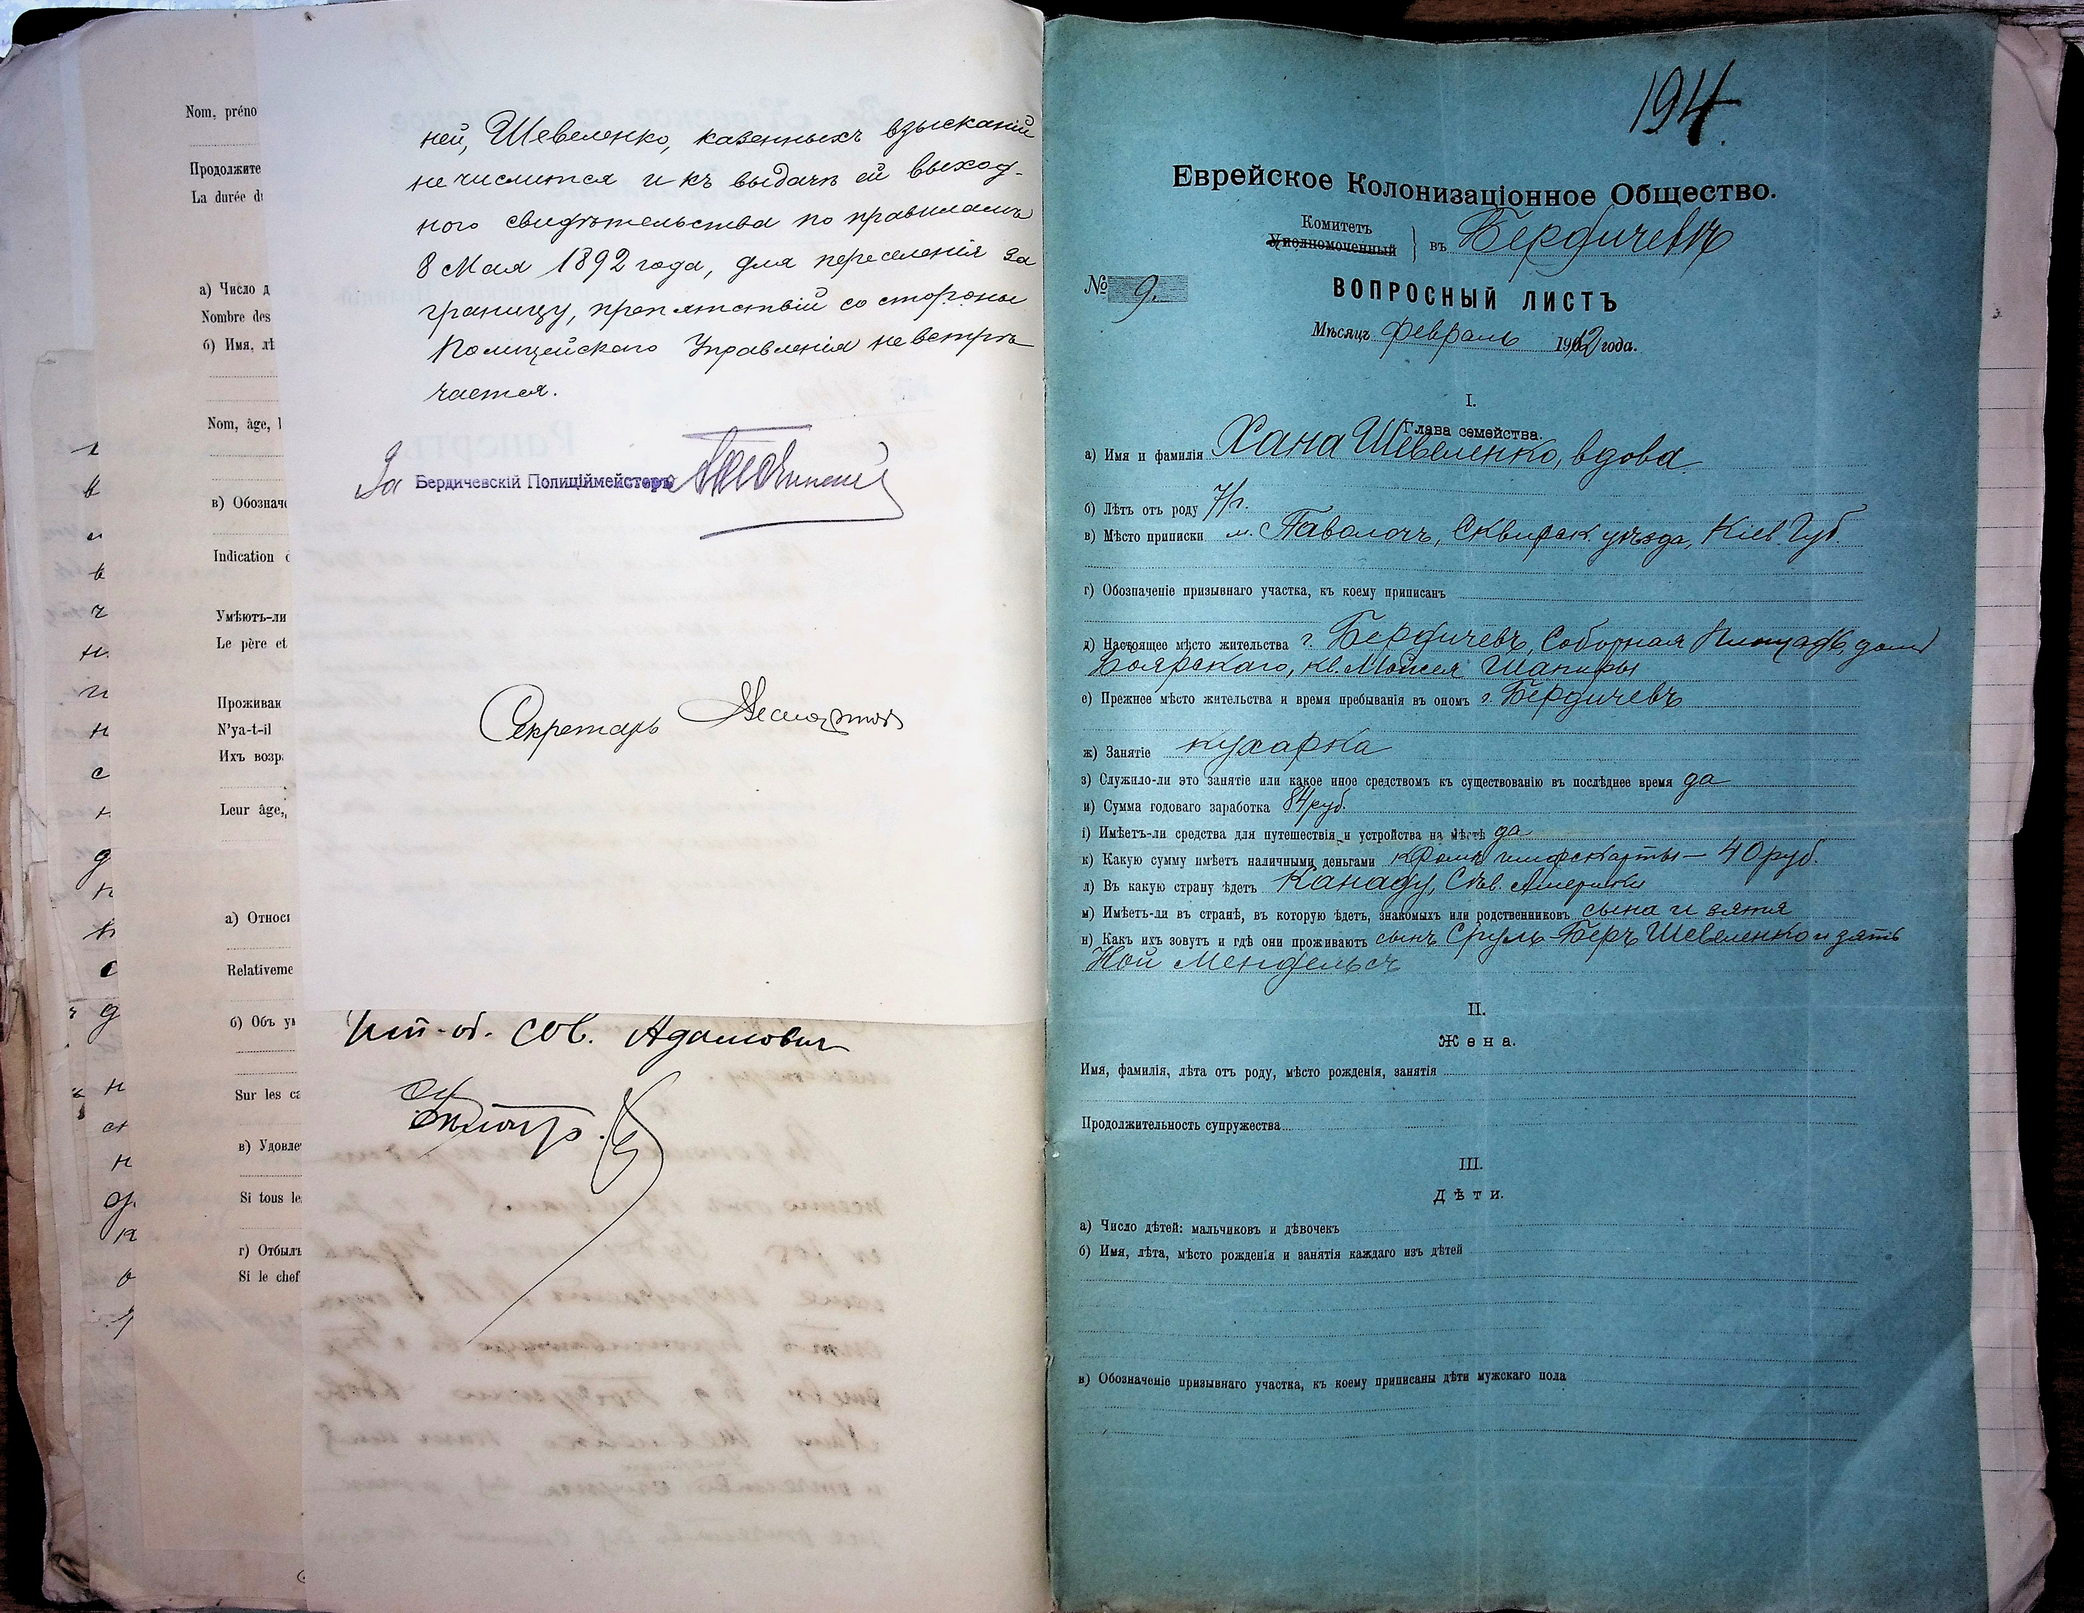 Nom, préno
Продолжите
La durée d
а) Число д
Nombre des
б) Имя, лѣ
Nom, âge, l
в) Обознач
Indication d
Умѣютъ-ли
Le père et
Проживаю
N'ya-t-il
Ихъ возр
Leur âge,
а) Относи
Relativeme
б) Объ ум
Sur les ca
в) Удовле
Si tous le
г) Отбылъ
Si le chef
ней, Шевеленко, казенныхъ взысканій
не числится и къ выдачѣ ей выход-
ного свидѣтельства по правиламъ
8 Мая 1892 года, для переселенія за
границу, препятствій со стороны
Полицейскаго Управленія не встрѣ
чается.
За Бердичевскій Полиціймейстеръ
Секретарь
сов. Адамович
194
Еврейское Колонизаціонное Общество.
Комитетъ
Уполномоченный } въ Бердичевѣ
№ 9.
ВОПРОСНЫЙ ЛИСТЪ
Мѣсяцъ февраль 1912 года.
I.
Глава семейства.
а) Имя и фамилія Хана Шевеленко, вдова
б) Лѣтъ отъ роду 71 г.
в) Мѣсто приписки м. Паволочъ, Сквирск. уѣзда, Кіев. Губ.
г) Обозначеніе призывнаго участка, къ коему приписанъ
д) Настоящее мѣсто жительства г. Бердичевъ, Соборная Площадь, домъ
Боярскаго, кв. Мойсея Шапиры
е) Прежнее мѣсто жительства и время пребыванія въ ономъ г. Бердичевъ
ж) Занятіе кухарка
з) Служило-ли это занятіе или какое иное средствомъ къ существованію въ послѣднее время да
и) Сумма годоваго заработка 84 руб.
і) Имѣетъ-ли средства для путешествія и устройства на мѣстѣ да
к) Какую сумму имѣетъ наличными деньгами кромѣ шифскарты — 40 руб.
л) Въ какую страну ѣдетъ Канаду, Сѣв. Америки
м) Имѣетъ-ли въ странѣ, въ которую ѣдетъ, знакомыхъ или родственниковъ сына и зятя
н) Какъ ихъ зовутъ и гдѣ они проживаютъ сынъ Сруль-Беръ Шевеленко и зять
Ной Мендельсъ
II.
Жена.
Имя, фамилія, лѣта отъ роду, мѣсто рожденія, занятія
Продолжительность супружества
III.
Дѣти.
а) Число дѣтей: мальчиковъ и дѣвочекъ
б) Имя, лѣта, мѣсто рожденія и занятія каждаго изъ дѣтей
в) Обозначеніе призывнаго участка, къ коему приписаны дѣти мужскаго пола